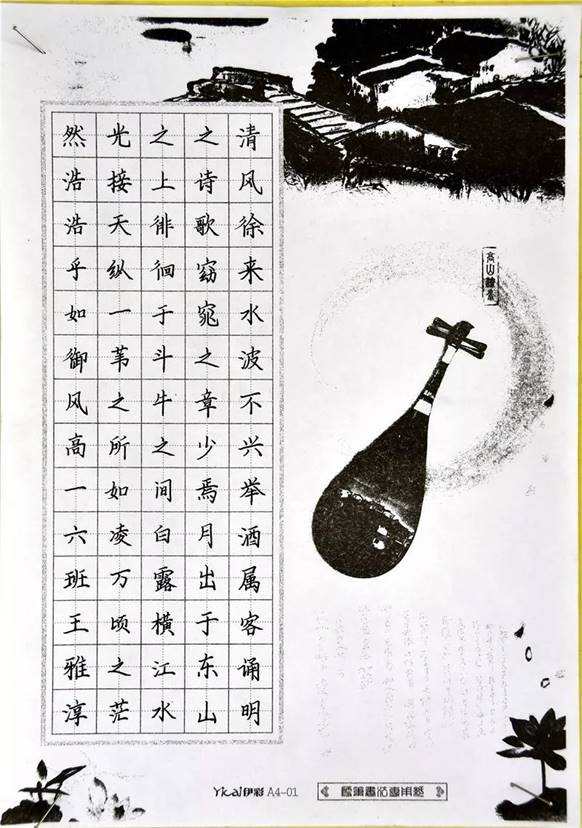 清风徐来水波不兴举酒属客诵明
之诗歌窈窕之章少焉月出于东山
之上徘徊于斗牛之间白露横江水
光接天纵一苇之所如凌万顷之茫
然浩浩乎如御风高一六班王雅淳
Yicai伊彩 A4-01
硬筆書法專用紙